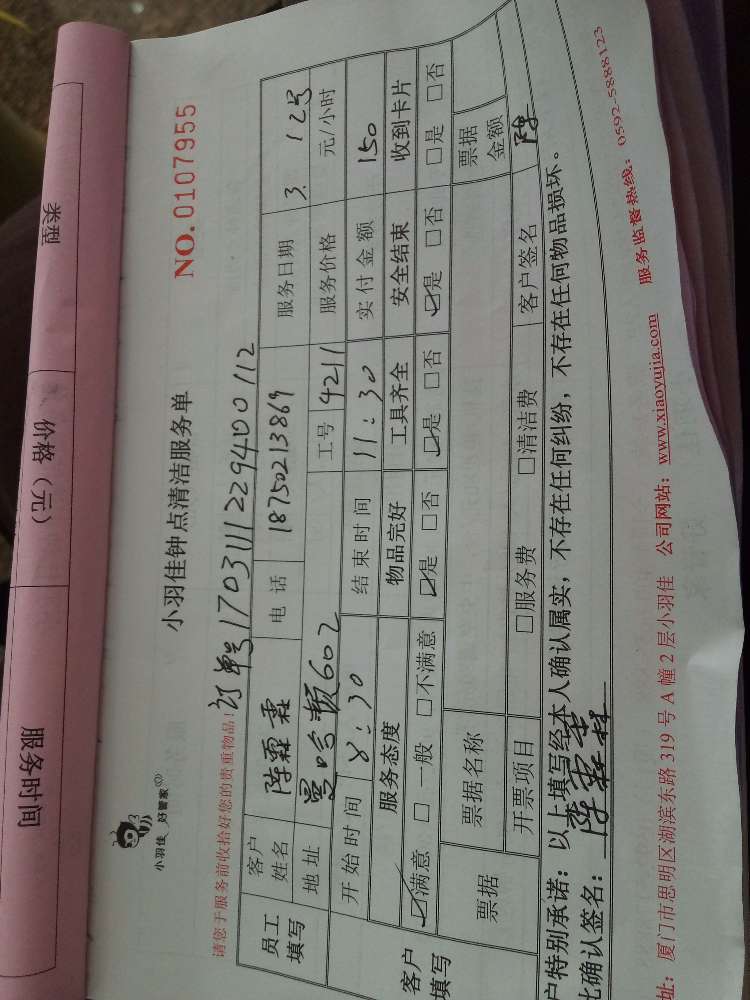 服务时间 价格（元） 类型
小羽佳 好管家
小羽佳钟点清洁服务单 NO. 0107955
请您于服务前收拾好您的贵重物品! 订单号17031112294D0112
员工填写 客户姓名 陈霖霖 电话 18750213869 服务日期 3. 12号
地址 602 工号 4211 服务价格 元/小时
开始时间 8:30 结束时间 11:30 实付金额 150
客户填写 服务态度 物品完好 工具齐全 安全结束 收到卡片
☑满意 □一般 □不满意 ☑是 □否 ☑是 □否 ☑是 □否 □是 □否
票据 票据名称 票据金额
开票项目 □服务费 □清洁费 客户签名 陈
户特别承诺：以上填写经本人确认属实，不存在任何纠纷，不存在任何物品损坏。
比确认签名：陈霖霖
址：厦门市思明区湖滨东路 319 号 A 幢 2 层小羽佳 公司网站：www.xiaoyujia.com 服务监督热线：0592-5888123